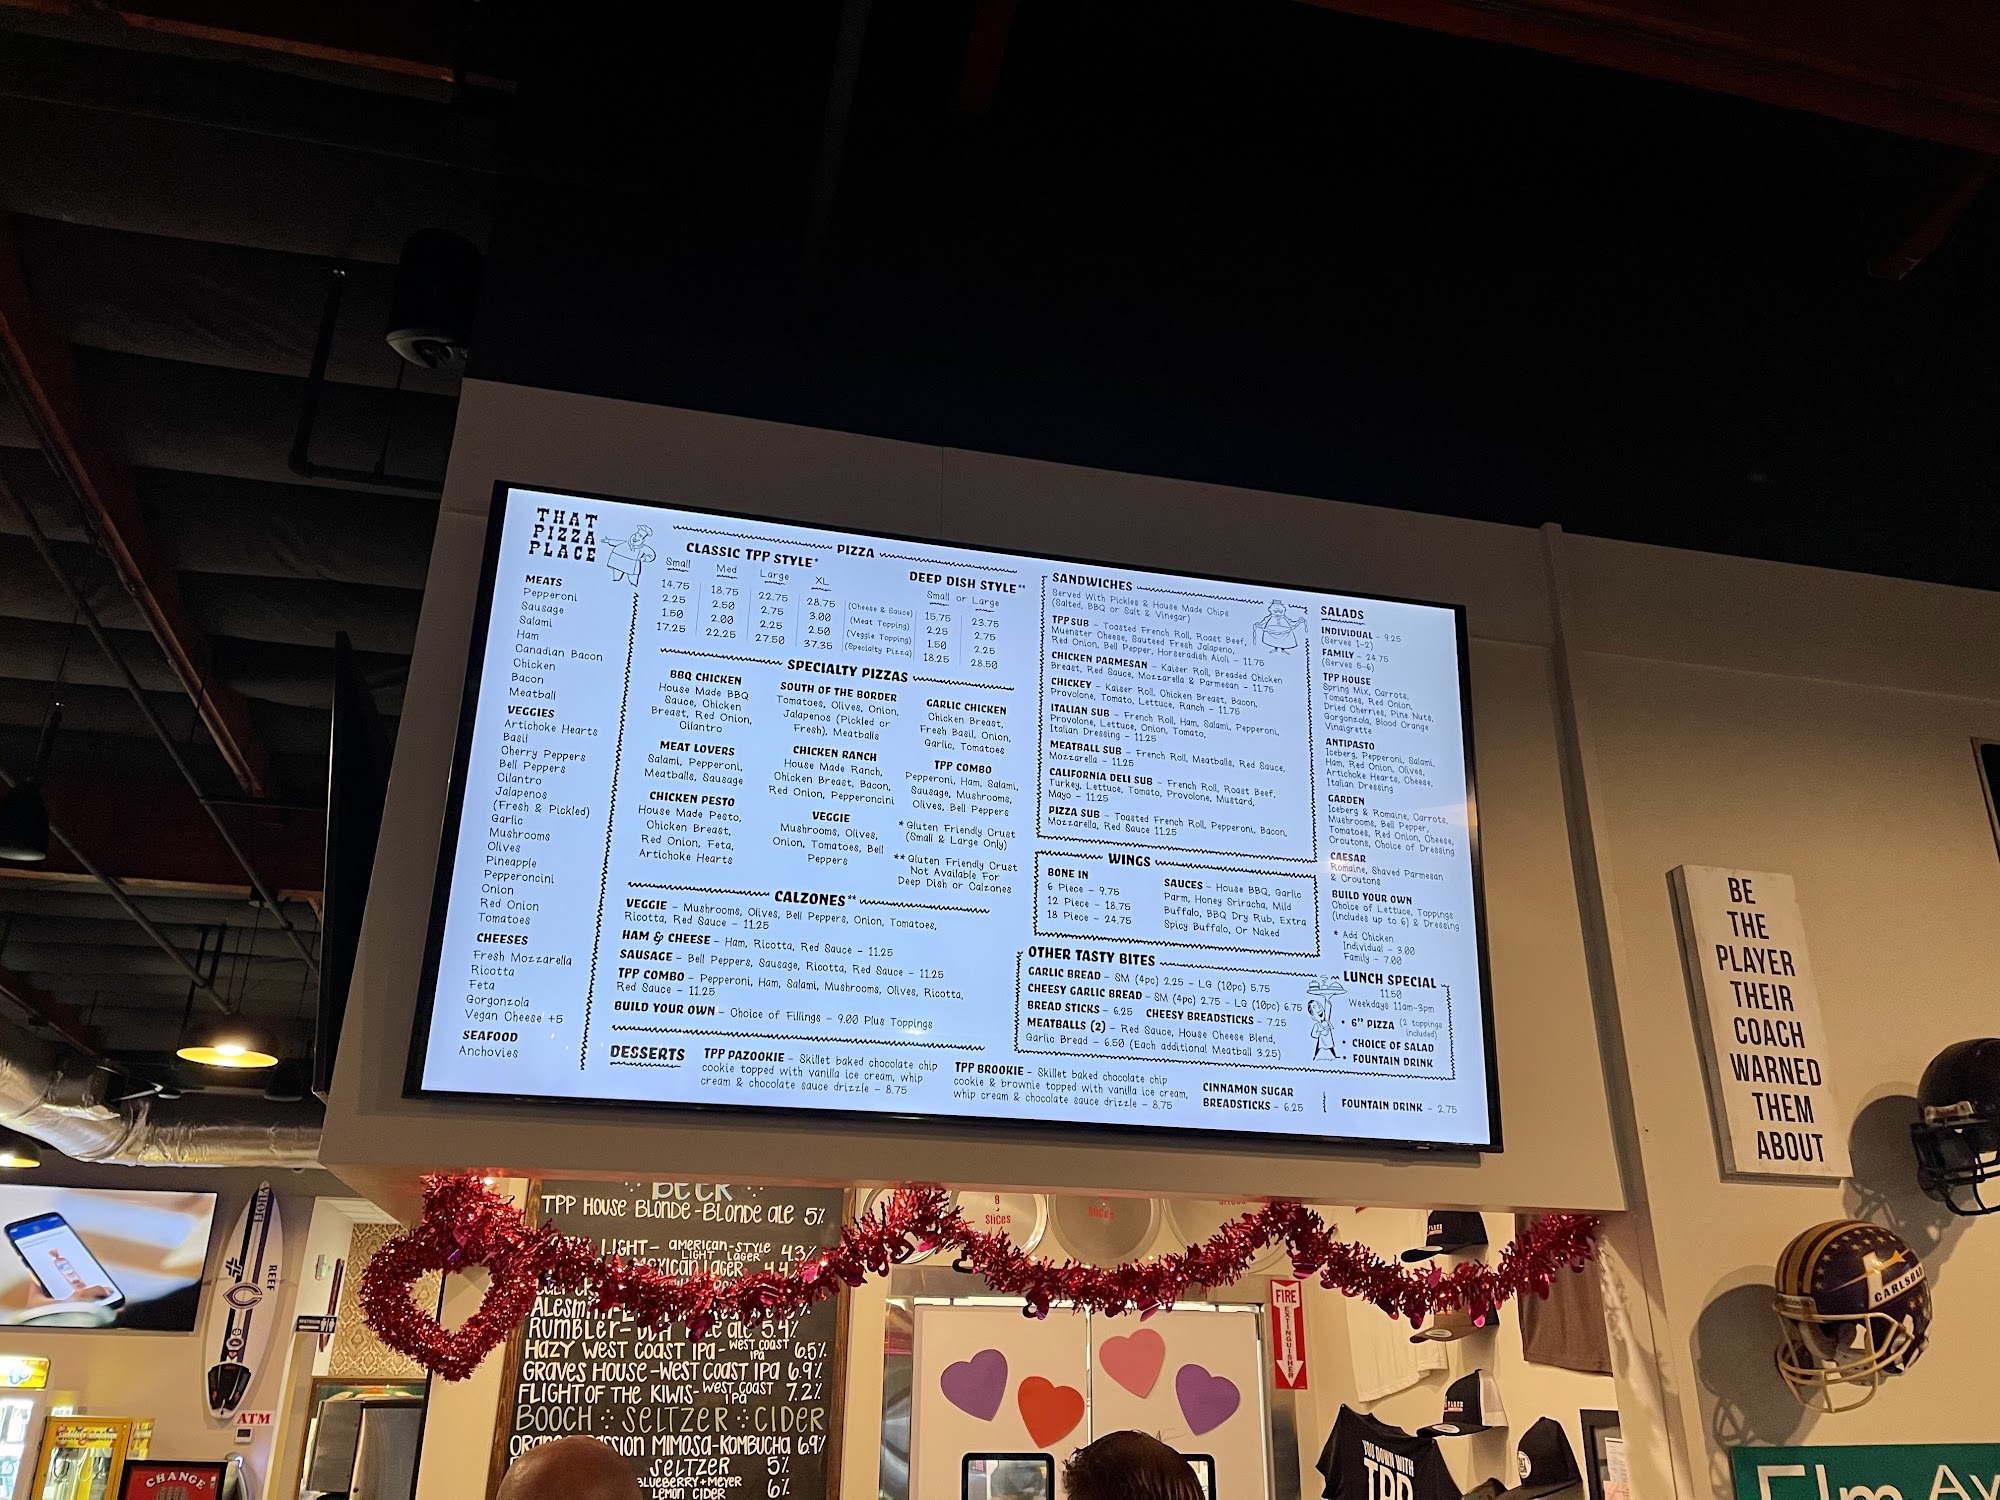 THAT
PIZZA
PLACE
MEATS
Pepperoni
Sausage
Salami
Ham
Canadian Bacon
Chicken
Bacon
Meatball
VEGGIES
Artichoke Hearts
Basil
Cherry Peppers
Bell Peppers
Cilantro
Jalapenos
(Fresh & Pickled)
Garlic
Mushrooms
Olives
Pineapple
Pepperoncini
Onion
Red Onion
Tomatoes
CHEESES
Fresh Mozzarella
Ricotta
Feta
Gorgonzola
Vegan Cheese +5
SEAFOOD
Anchovies
PIZZA
CLASSIC TPP STYLE*
DEEP DISH STYLE**
Small Med Large XL
Small or Large
14.75 18.75 22.75 28.75 (Cheese & Sauce) 15.75 23.75
2.25 2.50 2.75 3.00 (Meat Topping) 2.25 2.75
1.50 2.00 2.25 2.50 (Veggie Topping) 1.50 2.25
17.25 22.25 27.50 37.35 (Specialty Pizza) 18.25 28.50
SPECIALTY PIZZAS
BBQ CHICKEN
House Made BBQ
Sauce, Chicken
Breast, Red Onion,
Cilantro
MEAT LOVERS
Salami, Pepperoni,
Meatballs, Sausage
CHICKEN PESTO
House Made Pesto,
Chicken Breast,
Red Onion, Feta,
Artichoke Hearts
SOUTH OF THE BORDER
Tomatoes, Olives, Onion,
Jalapenos (Pickled or
Fresh), Meatballs
CHICKEN RANCH
House Made Ranch,
Chicken Breast, Bacon,
Red Onion, Pepperoncini
VEGGIE
Mushrooms, Olives,
Onion, Tomatoes, Bell
Peppers
GARLIC CHICKEN
Chicken Breast,
Fresh Basil, Onion,
Garlic, Tomatoes
TPP COMBO
Pepperoni, Ham, Salami,
Sausage, Mushrooms,
Olives, Bell Peppers
* Gluten Friendly Crust
(Small & Large Only)
** Gluten Friendly Crust
Not Available For
Deep Dish or Calzones
CALZONES**
VEGGIE - Mushrooms, Olives, Bell Peppers, Onion, Tomatoes,
Ricotta, Red Sauce - 11.25
HAM & CHEESE - Ham, Ricotta, Red Sauce - 11.25
SAUSAGE - Bell Peppers, Sausage, Ricotta, Red Sauce - 11.25
TPP COMBO - Pepperoni, Ham, Salami, Mushrooms, Olives, Ricotta,
Red Sauce - 11.25
BUILD YOUR OWN - Choice of Fillings - 9.00 Plus Toppings
DESSERTS
TPP PAZOOKIE - Skillet baked chocolate chip
cookie topped with vanilla ice cream, whip
cream & chocolate sauce drizzle - 8.75
TPP BROOKIE - Skillet baked chocolate chip
cookie & brownie topped with vanilla ice cream,
whip cream & chocolate sauce drizzle - 8.75
CINNAMON SUGAR
BREADSTICKS - 6.25
FOUNTAIN DRINK - 2.75
SANDWICHES
Served With Pickles & House Made Chips
(Salted, BBQ or Salt & Vinegar)
TPP SUB - Toasted French Roll, Roast Beef,
Muenster Cheese, Sauteed Fresh Jalapeno,
Red Onion, Bell Pepper, Horseradish Aioli - 11.75
CHICKEN PARMESAN - Kaiser Roll, Breaded Chicken
Breast, Red Sauce, Mozzarella & Parmesan - 11.75
CHICKEY - Kaiser Roll, Chicken Breast, Bacon,
Provolone, Tomato, Lettuce, Ranch - 11.75
ITALIAN SUB - French Roll, Ham, Salami, Pepperoni,
Provolone, Lettuce, Onion, Tomato,
Italian Dressing - 11.25
MEATBALL SUB - French Roll, Meatballs, Red Sauce,
Mozzarella - 11.25
CALIFORNIA DELI SUB - French Roll, Roast Beef,
Turkey, Lettuce, Tomato, Provolone, Mustard,
Mayo - 11.25
PIZZA SUB - Toasted French Roll, Pepperoni, Bacon,
Mozzarella, Red Sauce 11.25
WINGS
BONE IN
6 Piece - 9.75
12 Piece - 18.75
18 Piece - 24.75
SAUCES - House BBQ, Garlic
Parm, Honey Sriracha, Mild
Buffalo, BBQ Dry Rub, Extra
Spicy Buffalo, Or Naked
OTHER TASTY BITES
GARLIC BREAD - SM (4pc) 2.25 - LG (10pc) 5.75
CHEESY GARLIC BREAD - SM (4pc) 2.75 - LG (10pc) 6.75
BREAD STICKS - 6.25 CHEESY BREADSTICKS - 7.25
MEATBALLS (2) - Red Sauce, House Cheese Blend,
Garlic Bread - 6.50 (Each additional Meatball 3.25)
LUNCH SPECIAL
11.50
Weekdays 11am-3pm
• 6" PIZZA (2 toppings
included)
• CHOICE OF SALAD
• FOUNTAIN DRINK
SALADS
INDIVIDUAL - 9.25
(Serves 1-2)
FAMILY - 24.75
(Serves 5-6)
TPP HOUSE
Spring Mix, Carrots,
Tomatoes, Red Onion,
Dried Cherries, Pine Nuts,
Gorgonzola, Blood Orange
Vinaigrette
ANTIPASTO
Iceberg, Pepperoni, Salami,
Ham, Red Onion, Olives,
Artichoke Hearts, Cheese,
Italian Dressing
GARDEN
Iceberg & Romaine, Carrots,
Mushrooms, Bell Pepper,
Tomatoes, Red Onion, Cheese,
Croutons, Choice of Dressing
CAESAR
Romaine, Shaved Parmesan
& Croutons
BUILD YOUR OWN
Choice of Lettuce, Toppings
(includes up to 6) & Dressing
* Add Chicken
Individual - 3.00
Family - 7.00
BE
THE
PLAYER
THEIR
COACH
WARNED
THEM
ABOUT
BEER
TPP HOUSE BLONDE-BLONDE ALE 5%
LIGHT- AMERICAN-STYLE LIGHT LAGER 4.3%
LAGER 4.4%
RUMBLER- ALE 5.4%
HAZY WEST COAST IPA-WEST COAST IPA 6.5%
GRAVES HOUSE-WEST COAST IPA 6.9%
FLIGHT OF THE KIWIS-WEST COAST IPA 7.2%
BOOCH SELTZER CIDER
MIMOSA-KOMBUCHA 6.9%
SELTZER 5%
BLUEBERRY+MEYER
LEMON CIDER 6%
8
SLICES
SLICES
FIRE
EXTINGUISHER
CARLSBAD
YOU DOWN WITH
TPP
Elm Av
REEF
ATM
CHANGE